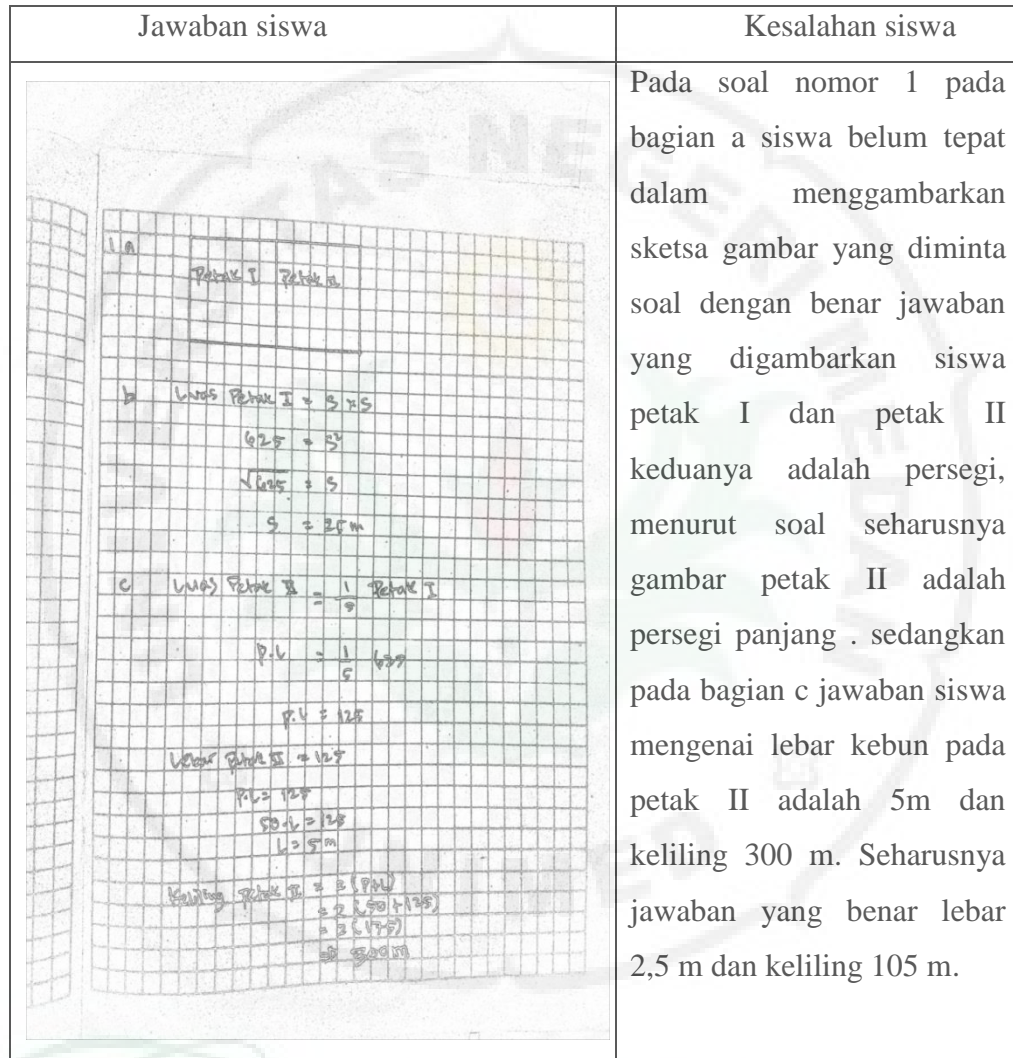 Jawaban siswa
Kesalahan siswa
1 a
Petak I Petak II
b Luas Petak I = S × S
625 = S²
√625 = S
S = 25 m
c Luas Petak II = 1/5 Petak I
P.L = 1/5
P.L = 125
Lebar Petak II = 125
P.L = 125
50.L = 125
L = 5 m
Keliling Petak II =
Pada soal nomor 1 pada
bagian a siswa belum tepat
dalam menggambarkan
sketsa gambar yang diminta
soal dengan benar jawaban
yang digambarkan siswa
petak I dan petak II
keduanya adalah persegi,
menurut soal seharusnya
gambar petak II adalah
persegi panjang . sedangkan
pada bagian c jawaban siswa
mengenai lebar kebun pada
petak II adalah 5m dan
keliling 300 m. Seharusnya
jawaban yang benar lebar
2,5 m dan keliling 105 m.